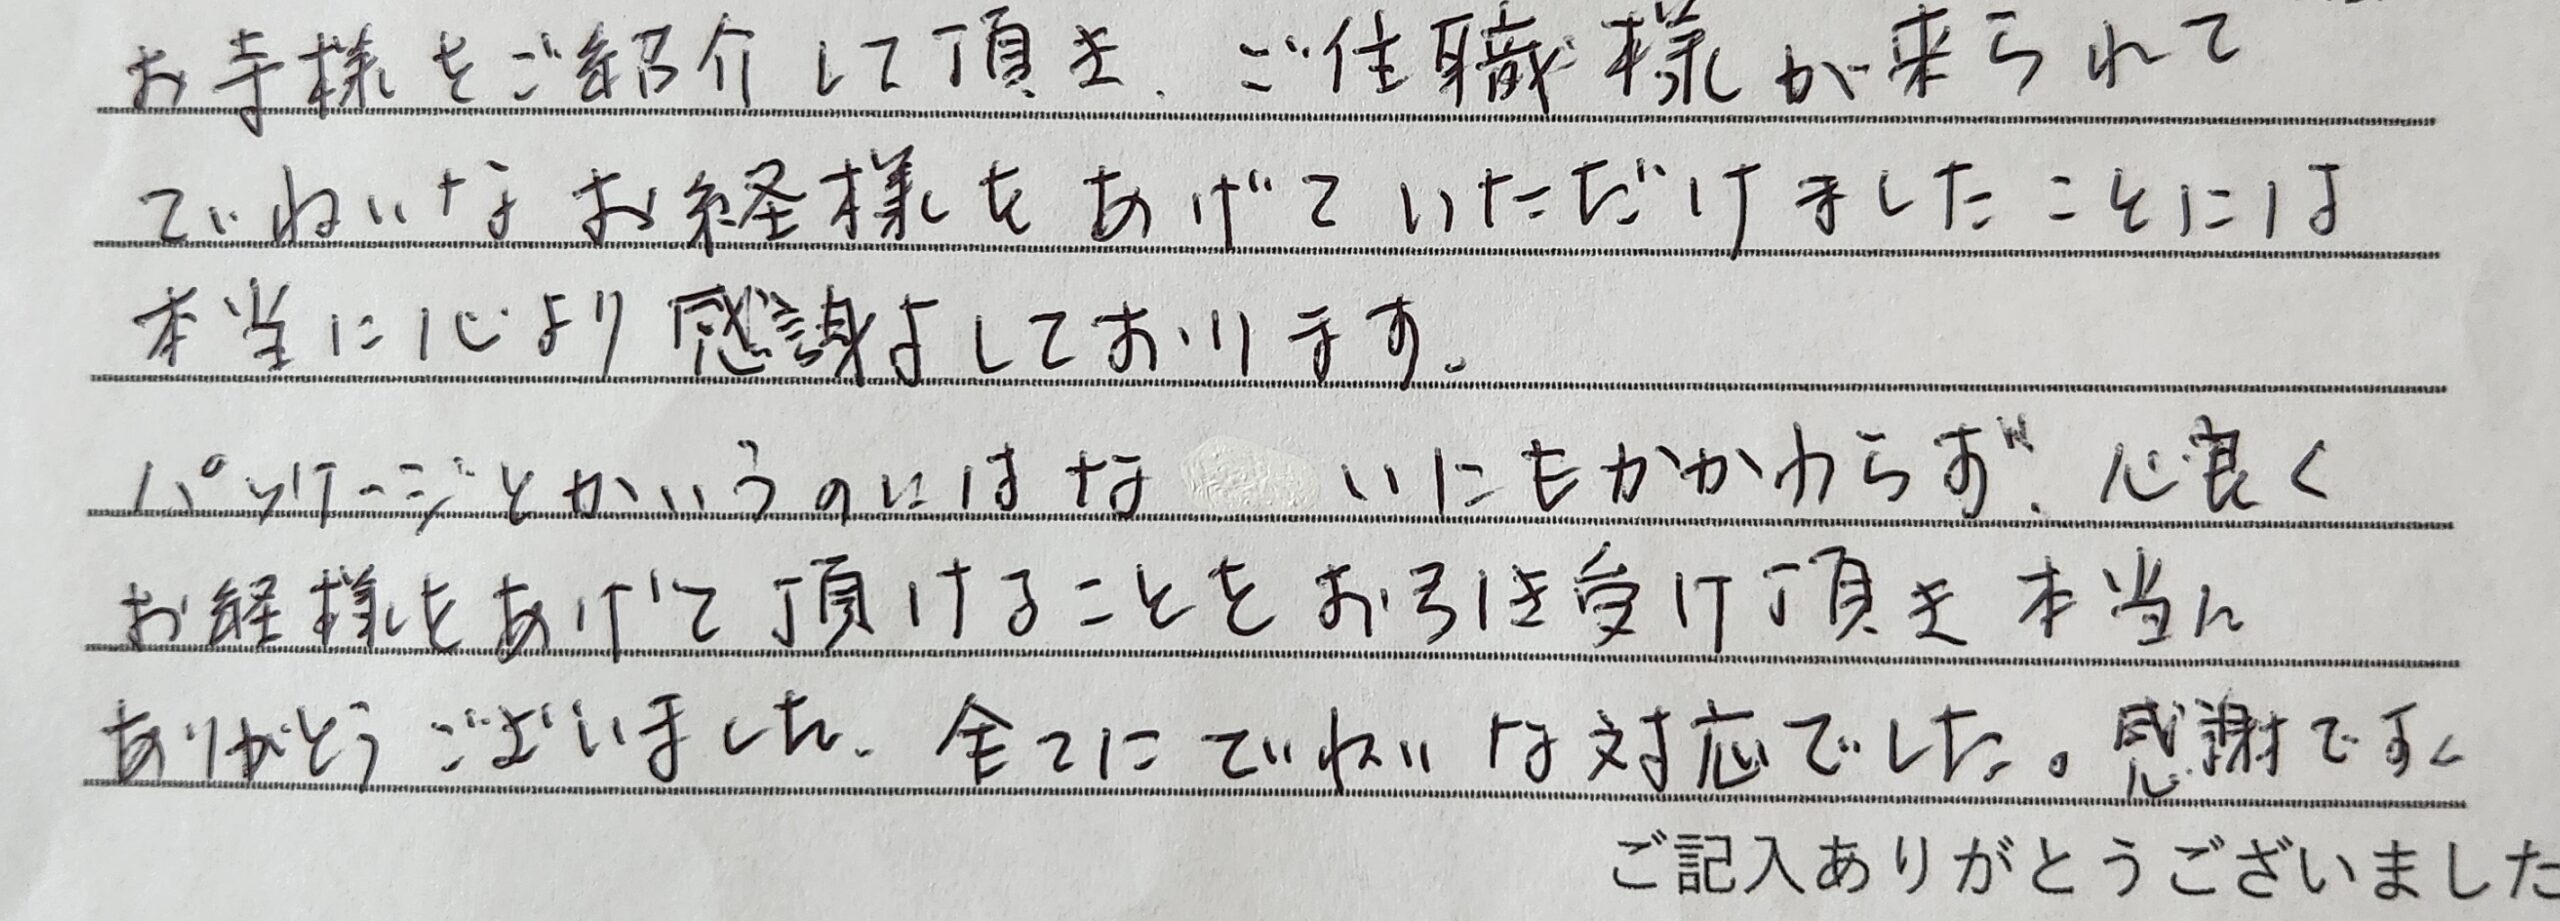 お寺様をご紹介して頂き、ご住職様が来られて
ていねいなお経様をあげていただけましたことには
本当に心より感謝よしております。
パッケージとかいうのにはないにもかかわらず、心良く
お経様をあげて頂けることをお引き受け頂き本当に
ありがとうございました。全てにていねいな対応でした。感謝です。
ご記入ありがとうございました